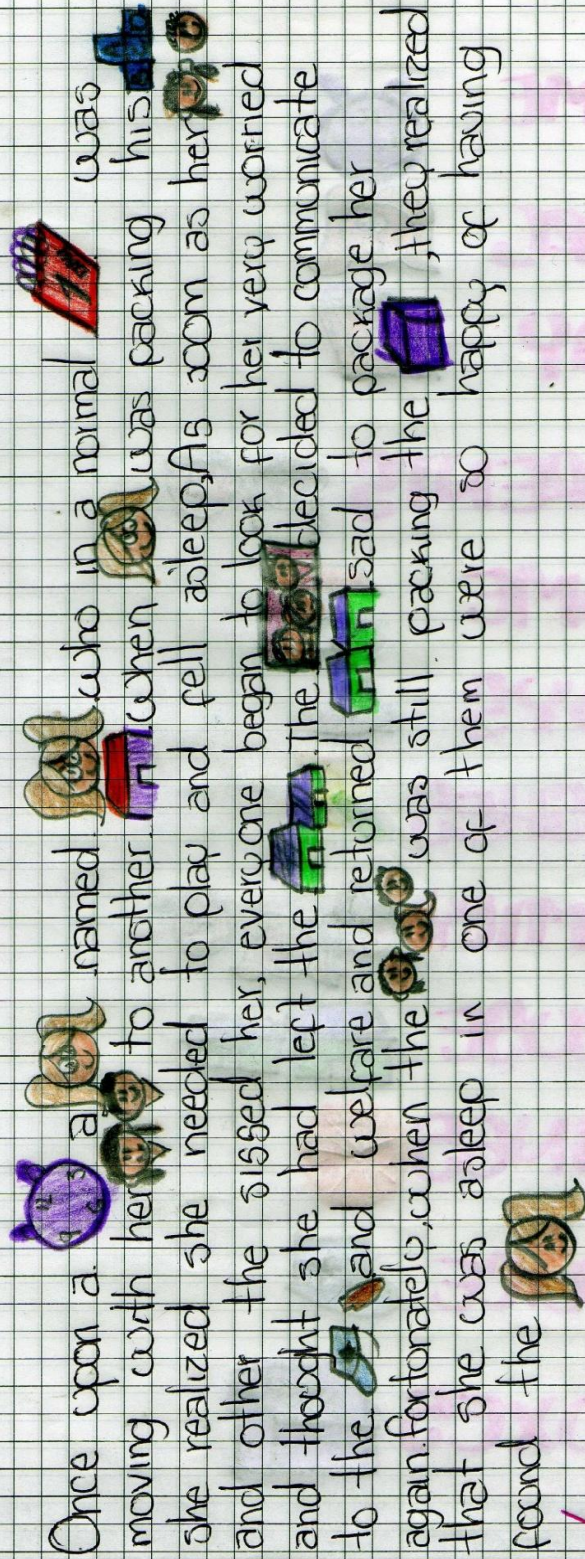 Once upon a a named who in a normal was
moving with her to another when was packing his
she realized she needed to play and fell asleep,As soom as her
and other the sissed her, everyone began to look for her very worried
and thought she had left the . The decided to communicate
to the and welcare and returned sad to package her
again.fortunately,when the was still packing the ,they realized
that she was asleep in one of them were so happy of having
found the